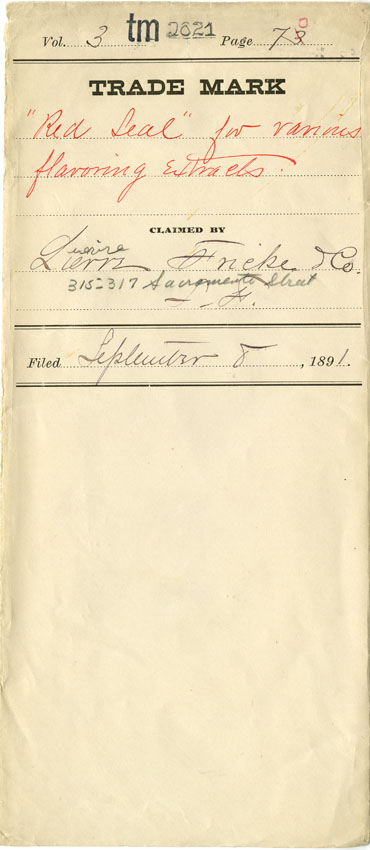 Vol. 3 tm 2021 Page 73
TRADE MARK
"Red Seal" for various
flavoring extracts.
CLAIMED BY
Fricke & Co.
315-317 Sacramento Street
S. F.
Filed September 8, 1891.